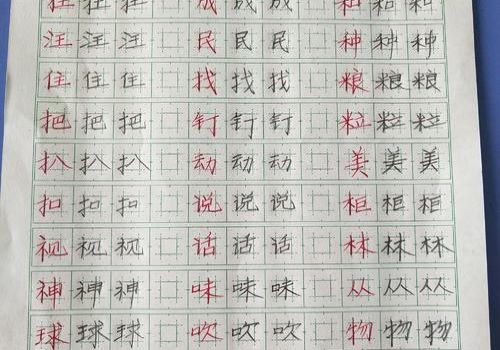 汪汪汪 民民民 种种种
住住住 找找找 粮粮粮
把把把 钉钉钉 粒粒粒
扒扒扒 动动动 美美美
扣扣扣 说说说 柜柜柜
视视视 话话话 林林林
神神神 味味味 从从从
球球球 吹吹吹 物物物